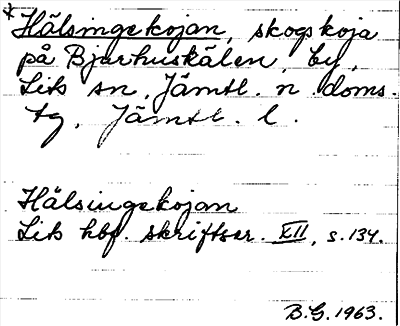 x Hälsingekojan, skogskoja
på Bjurhuskälen, by,
Lits sn, Jämtl. n. doms.
tg, Jämtl. l.
Hälsingekojan
Lits hbf. skriftser. XII, s. 134.
B.G. 1963.